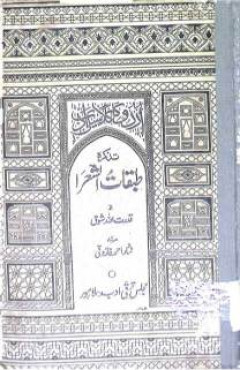 اردو کا کلاسیکی ادب
تذکرہ
طبقات الشعرا
از
قدرت اللہ شوق
مرتبہ
نثار احمد فاروقی
مجلس ترقی ادب، لاہور